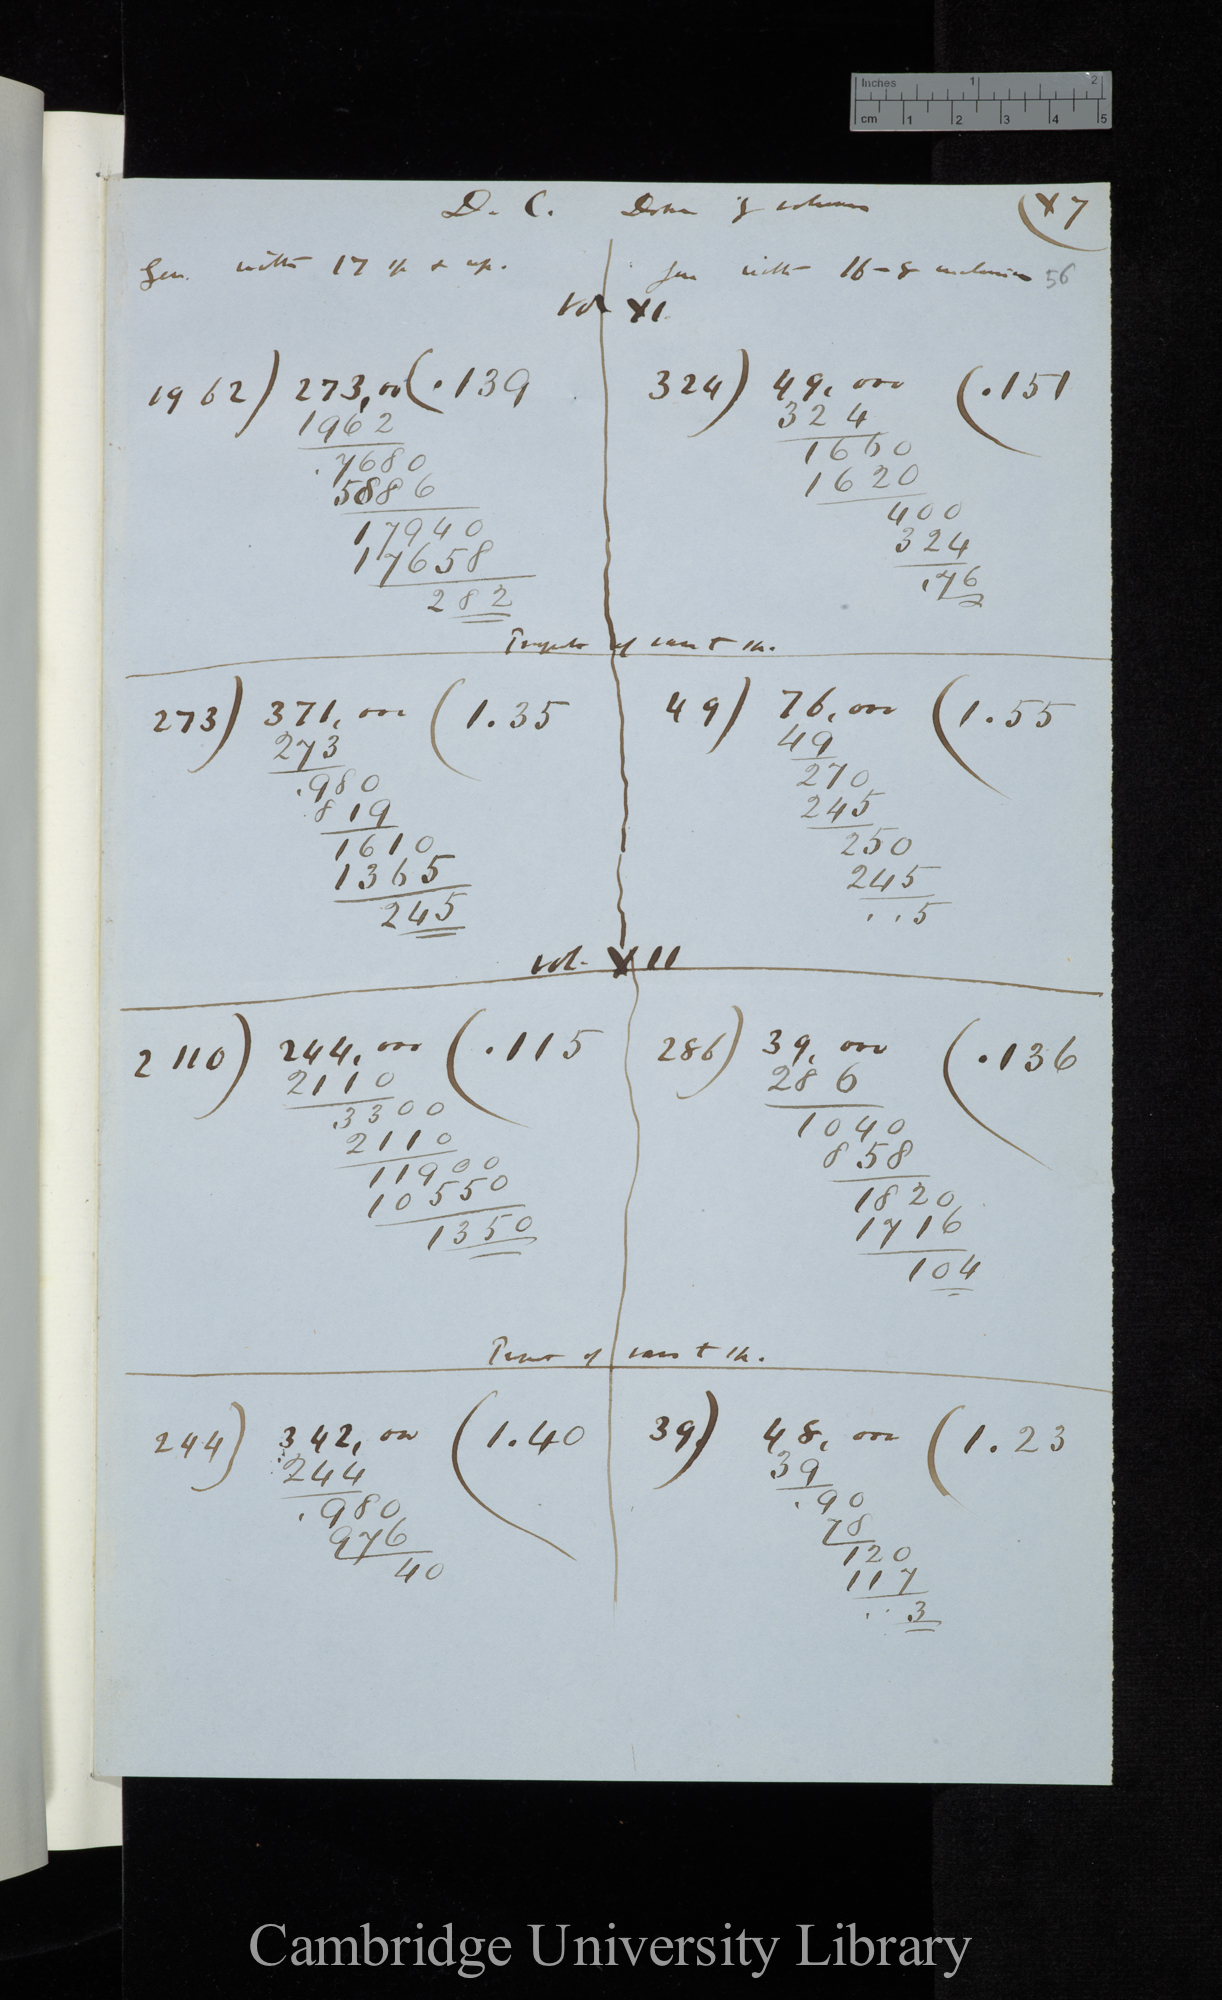 Inches 1 2
cm 1 2 3 4 5
D. C. of volumes X7
Gen. with 17 sp & up. Gen with 16- 56
Vol XI
1962) 273,00 (.139
1962
.7680
5886
17940
17658
282
324) 49,000 (.151
324
1660
1620
400
324
.76
of vars + 1k.
273) 371,000 (1.35
273
.980
819
1610
1365
245
49) 76,000 (1.55
49
270
245
250
245
..5
vol. XII
2110) 244,000 (.115
2110
.3300
2110
11900
10550
1350
286) 39,000 (.136
286
1040
858
1820
1716
104
of vars + 1k.
244) 342,00 (1.40
244
.980
976
40
39) 48,000 (1.23
39
.90
78
120
117
..3
Cambridge University Library